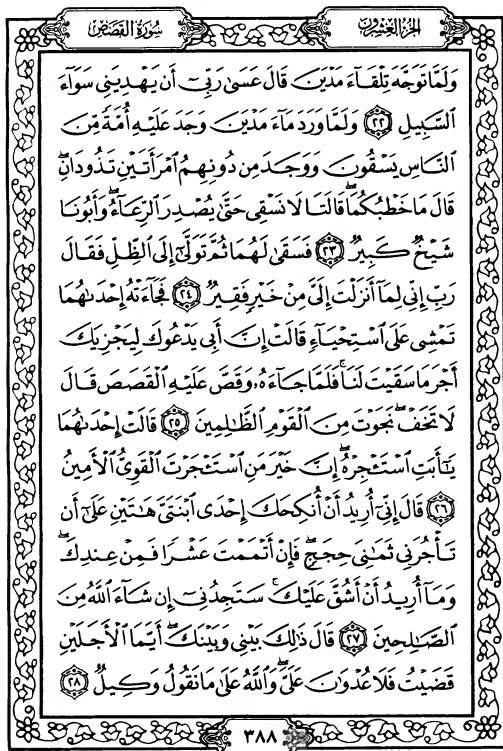 الجزء العشرون
سورة القصص
وَلَمَّا تَوَجَّهَ تِلْقَآءَ مَدْيَنَ قَالَ عَسَىٰ رَبِّىٓ أَن يَهْدِيَنِى سَوَآءَ
ٱلسَّبِيلِ ٢٢ وَلَمَّا وَرَدَ مَآءَ مَدْيَنَ وَجَدَ عَلَيْهِ أُمَّةً مِّنَ
ٱلنَّاسِ يَسْقُونَ وَوَجَدَ مِن دُونِهِمُ ٱمْرَأَتَيْنِ تَذُودَانِۖ
قَالَ مَا خَطْبُكُمَاۖ قَالَتَا لَا نَسْقِى حَتَّىٰ يُصْدِرَ ٱلرِّعَآءُۖ وَأَبُونَا
شَيْخٌ كَبِيرٌ ٢٣ فَسَقَىٰ لَهُمَا ثُمَّ تَوَلَّىٰٓ إِلَى ٱلظِّلِّ فَقَالَ
رَبِّ إِنِّى لِمَآ أَنزَلْتَ إِلَىَّ مِنْ خَيْرٍ فَقِيرٌ ٢٤ فَجَآءَتْهُ إِحْدَىٰهُمَا
تَمْشِى عَلَى ٱسْتِحْيَآءٍ قَالَتْ إِنَّ أَبِى يَدْعُوكَ لِيَجْزِيَكَ
أَجْرَ مَا سَقَيْتَ لَنَاۚ فَلَمَّا جَآءَهُۥ وَقَصَّ عَلَيْهِ ٱلْقَصَصَ قَالَ
لَا تَخَفْۖ نَجَوْتَ مِنَ ٱلْقَوْمِ ٱلظَّٰلِمِينَ ٢٥ قَالَتْ إِحْدَىٰهُمَا
يَٰٓأَبَتِ ٱسْتَـْٔجِرْهُۖ إِنَّ خَيْرَ مَنِ ٱسْتَـْٔجَرْتَ ٱلْقَوِىُّ ٱلْأَمِينُ
٢٦ قَالَ إِنِّىٓ أُرِيدُ أَنْ أُنكِحَكَ إِحْدَى ٱبْنَتَىَّ هَٰتَيْنِ عَلَىٰٓ أَن
تَأْجُرَنِى ثَمَٰنِىَ حِجَجٍۖ فَإِنْ أَتْمَمْتَ عَشْرًا فَمِنْ عِندِكَۖ
وَمَآ أُرِيدُ أَنْ أَشُقَّ عَلَيْكَۚ سَتَجِدُنِىٓ إِن شَآءَ ٱللَّهُ مِنَ
ٱلصَّٰلِحِينَ ٢٧ قَالَ ذَٰلِكَ بَيْنِى وَبَيْنَكَۖ أَيَّمَا ٱلْأَجَلَيْنِ
قَضَيْتُ فَلَا عُدْوَٰنَ عَلَىَّۖ وَٱللَّهُ عَلَىٰ مَا نَقُولُ وَكِيلٌ ٢٨
٣٨٨